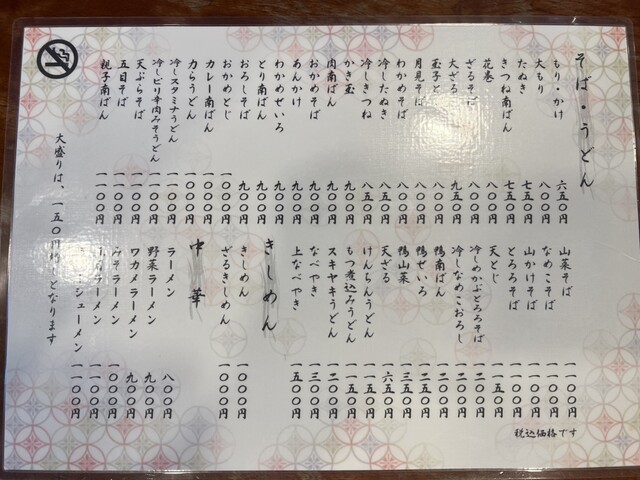 そば・うどん
もり・かけ 六五〇円
大もり 八〇〇円
たぬき 七五〇円
きつね南ばん 七五〇円
花巻 八〇〇円
ざるそば 八〇〇円
大ざる 九五〇円
玉子とじ 八〇〇円
月見そば 八〇〇円
わかめそば 八〇〇円
冷したぬき 八五〇円
冷しきつね 八五〇円
かき玉 九〇〇円
肉南ばん 九〇〇円
おかめそば 九〇〇円
あんかけ 九〇〇円
わかめせいろ 九〇〇円
とり南ばん 九〇〇円
おろしそば 九〇〇円
おかめとじ 一〇〇〇円
カレー南ばん 一〇〇〇円
力らうどん 一〇〇〇円
冷しスタミナうどん 一一〇〇円
冷しピリ辛肉みそうどん 一一〇〇円
天ぷらそば 一一〇〇円
五目そば 一一〇〇円
親子南ばん 一一〇〇円
山菜そば 一一〇〇円
なめこそば 一一〇〇円
山かけそば 一一〇〇円
とろろそば 一一〇〇円
天とじ 一一五〇円
冷しめかぶとろろそば 一二〇〇円
冷しなめこおろし 一二〇〇円
鴨南ばん 一二五〇円
鴨せいろ 一二五〇円
鴨山菜 一三五〇円
天ざる 一六五〇円
けんちんうどん 一一五〇円
もつ煮込みうどん 一一五〇円
スキヤキうどん 一二〇〇円
なべやき 一三〇〇円
上なべやき 一五〇〇円
きしめん
きしめん 一〇〇〇円
ざるきしめん 一〇〇〇円
中華
ラーメン 八〇〇円
野菜ラーメン 九〇〇円
ワカメラーメン 九〇〇円
みそラーメン 一〇〇〇円
ラーメン 一一〇〇円
シューメン 一一〇〇円
大盛りは、一五〇円 となります
税込価格です